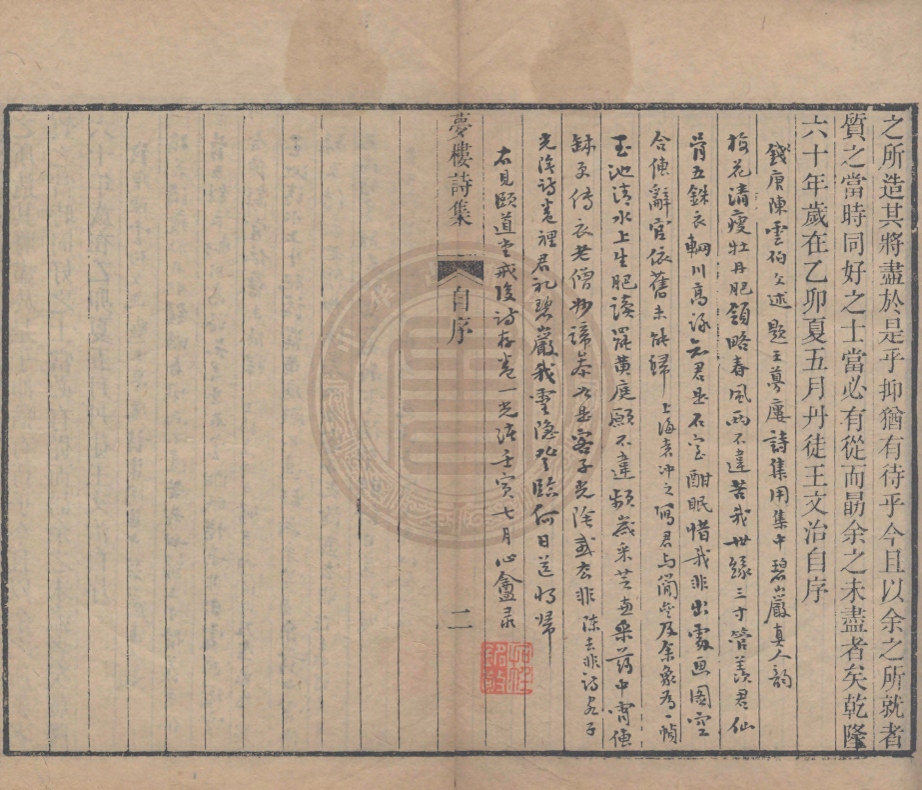 之所造其將盡於是乎抑猶有待乎今且以余之所就者
質之當時同好之士當必有從而勗余之未盡者矣乾隆
六十年歲在乙卯夏五月丹徒王文治自序
錢唐陳雲伯文述題王夢廔詩集用集中碧巖真人韵
梅花清瘦牡丹肥領略春風兩不違苦我世緣三寸管羨君仙
骨五銖衣輞川高詠
君是石室酣眠惜我非出處畫圖空
合傳辭官依舊未能歸 上海
冲之寫君與
及余象為一幀
玉池清水上生肥讀罷黃庭願不違頻歲采芝
采葯中宵傳
缽更傳衣老僧妙諦
是客子光陰或去非 陳去非詩客子
光陰詩卷裡君禮碧巖我靈隱登臨何日送將歸
右見頤道堂戒後詩存卷一光緒壬寅七月心盦录
夢樓詩集
自序
二